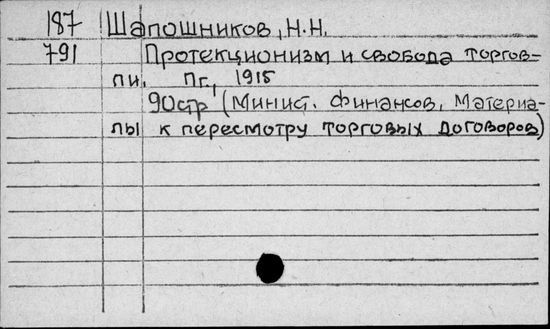 187 Шапошников, Н.Н.
791 Протекционизм и свобода торгов-
ли. Пг., 1915
90стр (Минист. Финансов, Материа-
лы к пересмотру торговых договоров)